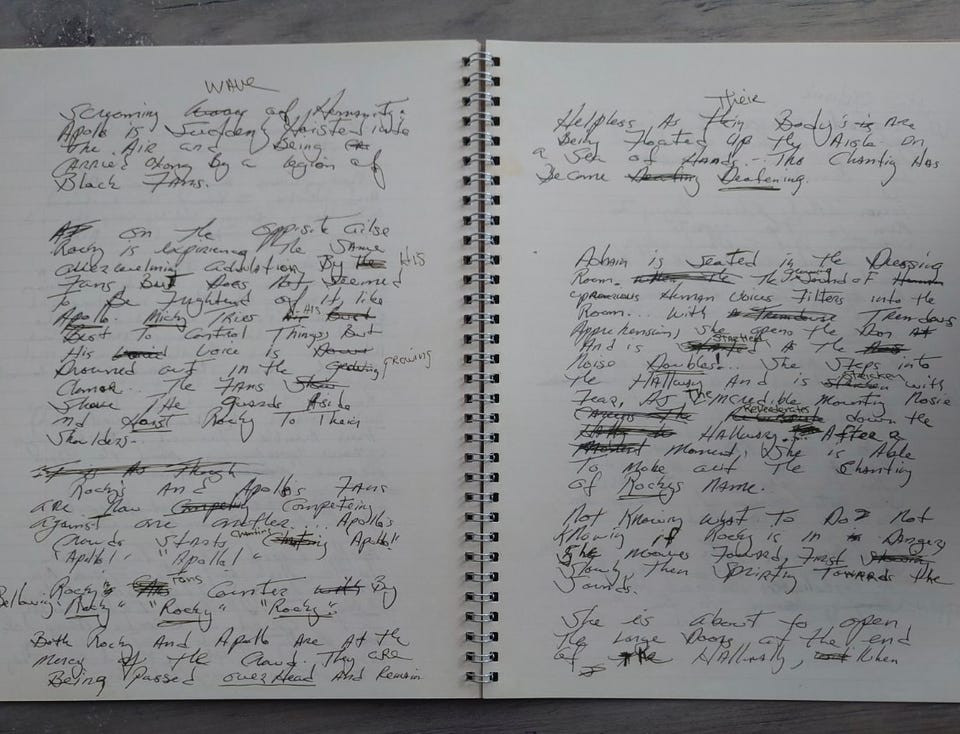 WAVE
Screaming of Humanity:
Apollo is Suddenly Hoisted into
the Air and Being
CArried along By a legion of
Black Fans.
on the opposite Ailse
Rocky is expiriencing the Same
overwelming adulation By the HIS
Fans But Does Not Seemed
To Be Frightened of it like
Apollo. Micky Tries His
Best To Control Things But
His Voice is
Drowned out in the Growing growing
Clamor... The Fans
Shove The guards Aside
And Hoist Rocky To Their
Shoulders.
It is As Though
Rocky's And Apollo's Fans
ARE Now Competing Competeing
against one another.... Apollo's
Crowds Starts chanting "Apollo!"
"Apollo!" "Apollo!"
Fans
Rocky's Counter with By
Bellowing "Rocky" "Rocky" "Rocky."
Both Rocky And Apollo Are At the
mercy of the Crowd. They ARE
Being Passed overHead And Remain
Their
Helpless As Their Body's is Are
Being Floated Up the Aisle On
a Sea of Hands... The Chanting Has
Become Deafening.
Adrain is Seated in the Dressing
Room. The growing Sound of Human
uproarious Human Voices Filters into the
Room... With A Tremendous
Apprehension, She opens the Door
And is Startled As the
Noise Doubles!... She Steps into
the Hallway And is Stricken with
Fear, As The incredible Mounting Nosie
Reverberates down the
Hallway. After a
Moment, She is Able
To Make out the Chanting
of Rockys Name.
Not Knowing What To Do? Not
Knowing if Rocky is in Danger,
She Moves Foward, First
Slowly, Then Sprinting Towards the
Sounds.
She is about to open
the Large Doors at the end
of the Hallway, When